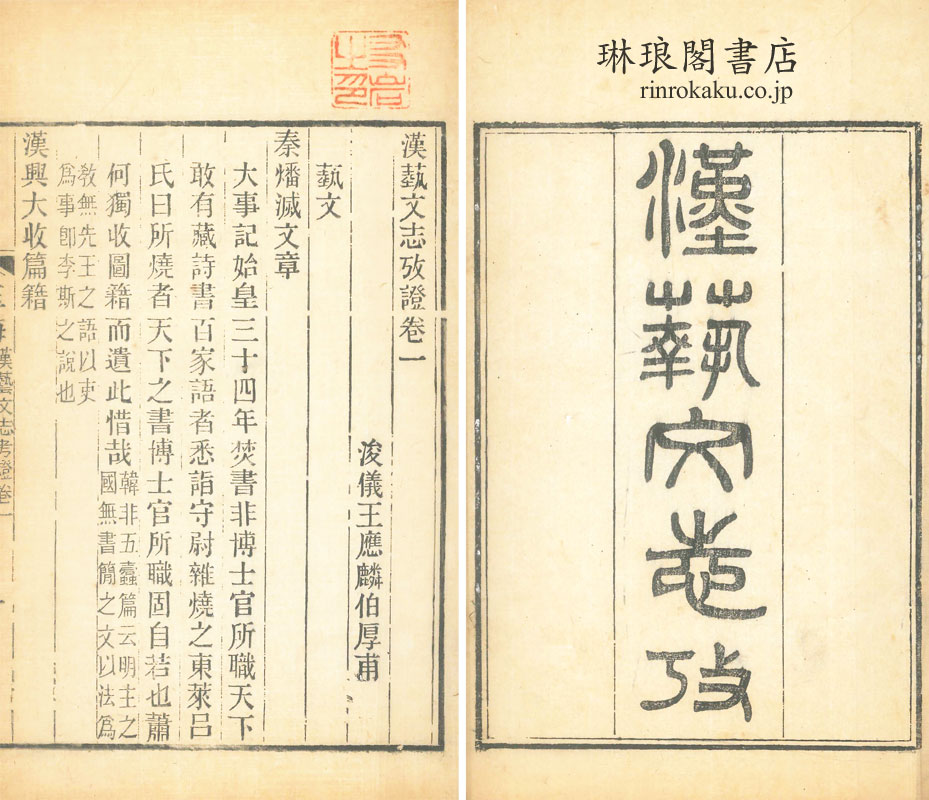 琳琅閣書店
rinrokaku.co.jp
漢蓺文志攷
漢蓺文志攷證卷一
浚儀王應麟伯厚甫
蓺文
秦燔滅文章
大事記始皇三十四年焚書非博士官所職天下
敢有藏詩書百家語者悉詣守尉雜燒之東萊呂
氏曰所燒者天下之書博士官所職固自若也蕭
何獨收圖籍而遺此惜哉韓非五蠹篇云明主之
國無書簡之文以法爲
敎無先王之語以吏
爲事卽李斯之說也
漢興大收篇籍
漢藝文志考證卷一